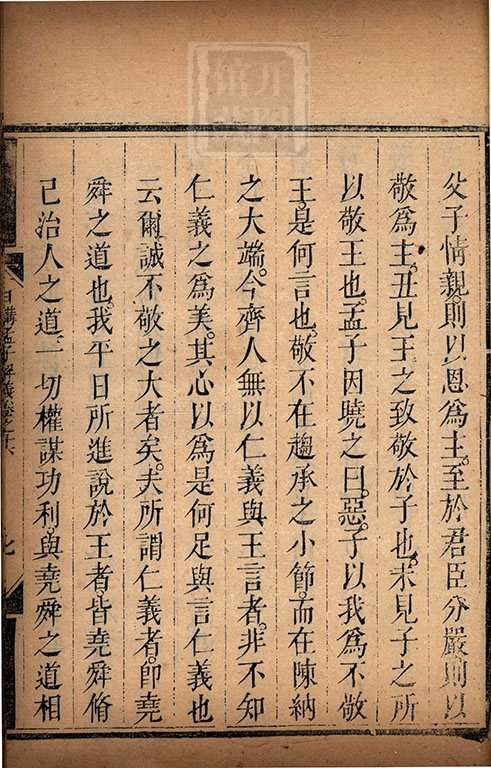 父子情親。則以恩為主。至於君臣分嚴。則以
敬為主。丑見王之致敬於子也。未見子之所
以敬王也。孟子因曉之曰。惡。子以我為不敬
王。是何言也。敬不在趨承之小節。而在陳納
之大端。今齊人無以仁義與王言者。非不知
仁義之為美。其心以為是何足與言仁義也
云爾。誠不敬之大者矣。夫所謂仁義者。即堯
舜之道也。我平日所進說於王者。皆堯舜脩
己治人之道。一切權謀功利。與堯舜之道相
日講 解義卷之十六
七